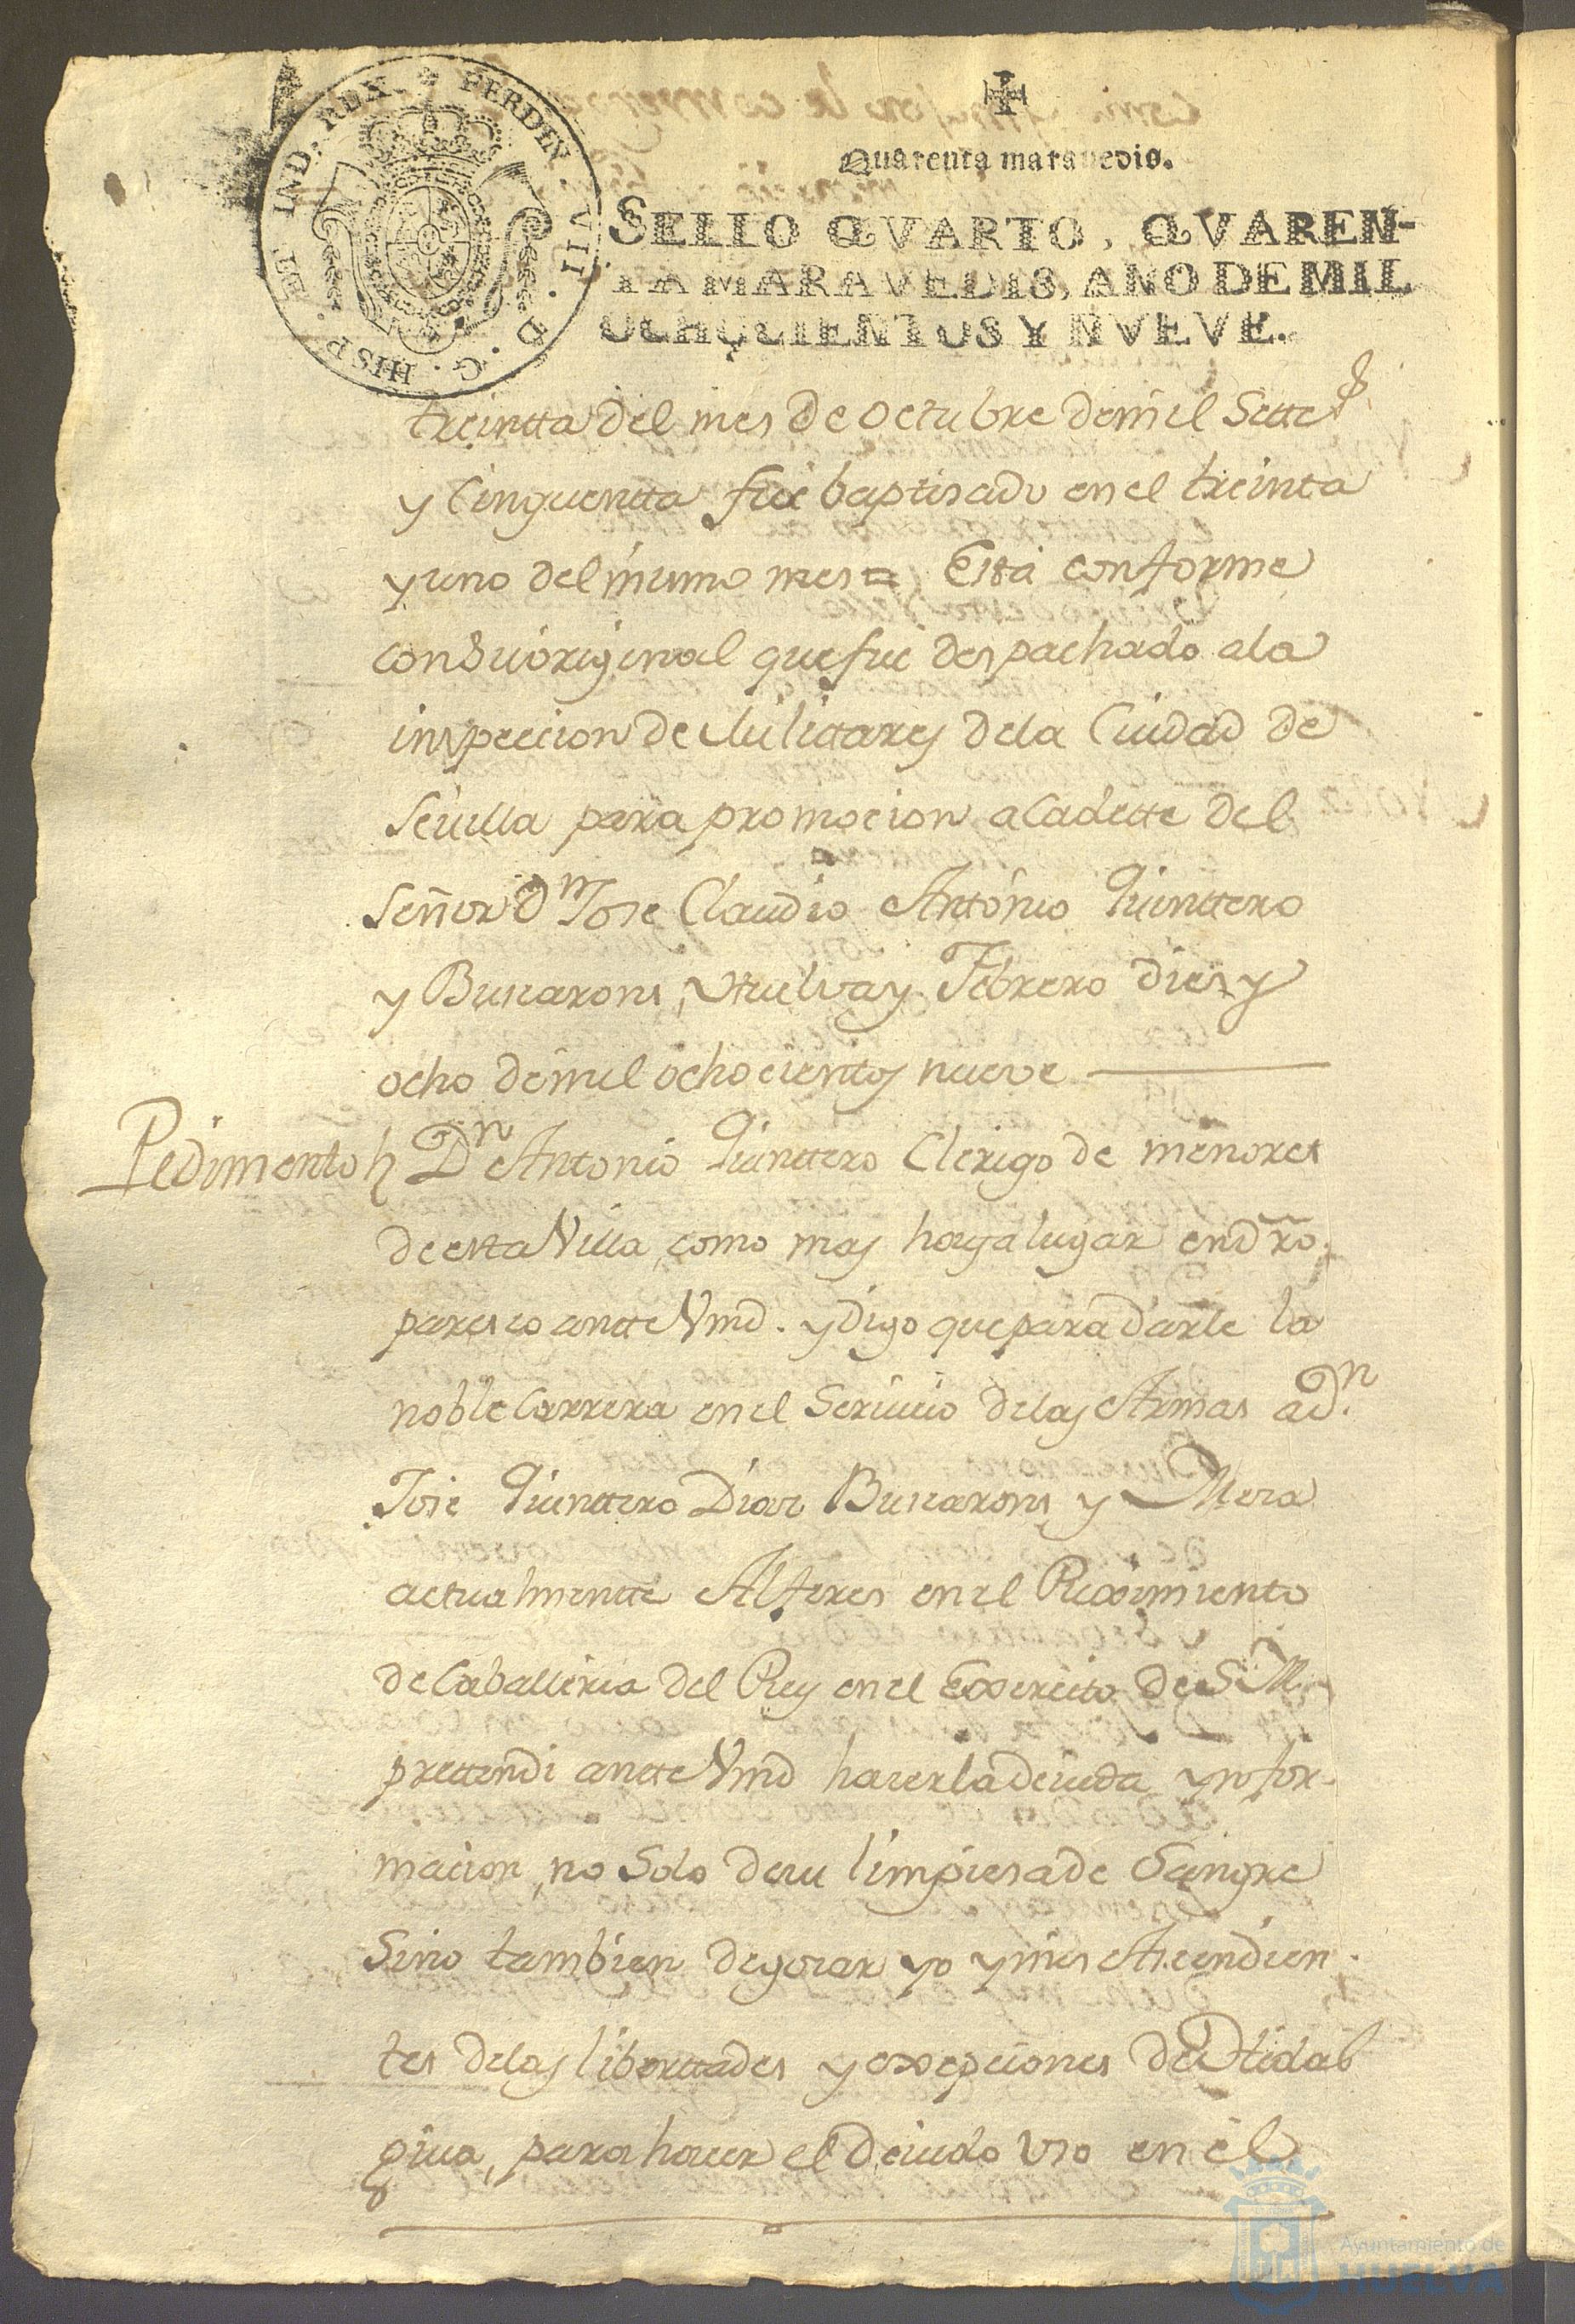 FERDIN. VII. D. G. HISP. ET IND. REX.
Quarenta maravedis.
SELLO QVARTO, QVAREN-
TA MARAVEDIS, AÑO DE MIL
OCHOCIENTOS Y NVEVE.
treintta del mes de octubre de mil Sette
y Cinquentta fue baptisado en el treinta
y uno del mismo mes = Está conforme
con su original que fue despachado a la
inspeccion de Militares de la Ciudad de
Sevilla para promocion a Cadette del
Señor Dn Jose Claudio Antonio Quinttero
y Buscarons, Huelva y Febrero dies y
ocho de mil ochocientos nueve
Pedimento Dn Antonio Quinttero Clerigo de menores
de esta Villa, como mas haya lugar en dro.
paresco antte Vmd. y Digo que para darle la
noble Carrera en el Servicio de las Armas a Dn.
Jose Quinttero Diaz Buscarons y Mora
actualmentte Alferes en el Reximiento
de Caballeria del Rey en el Exercito de S M.
prettendi antte Vmd hacer la devida ynfor-
macion, no Solo de su limpiesa de Sangre
Sino tambien de gozar yo y mis Ascendien-
tes de las liberttades y exxepciones de Hidal
guia, para hacer el devido uso en el
Ayuntamiento de
HUELVA